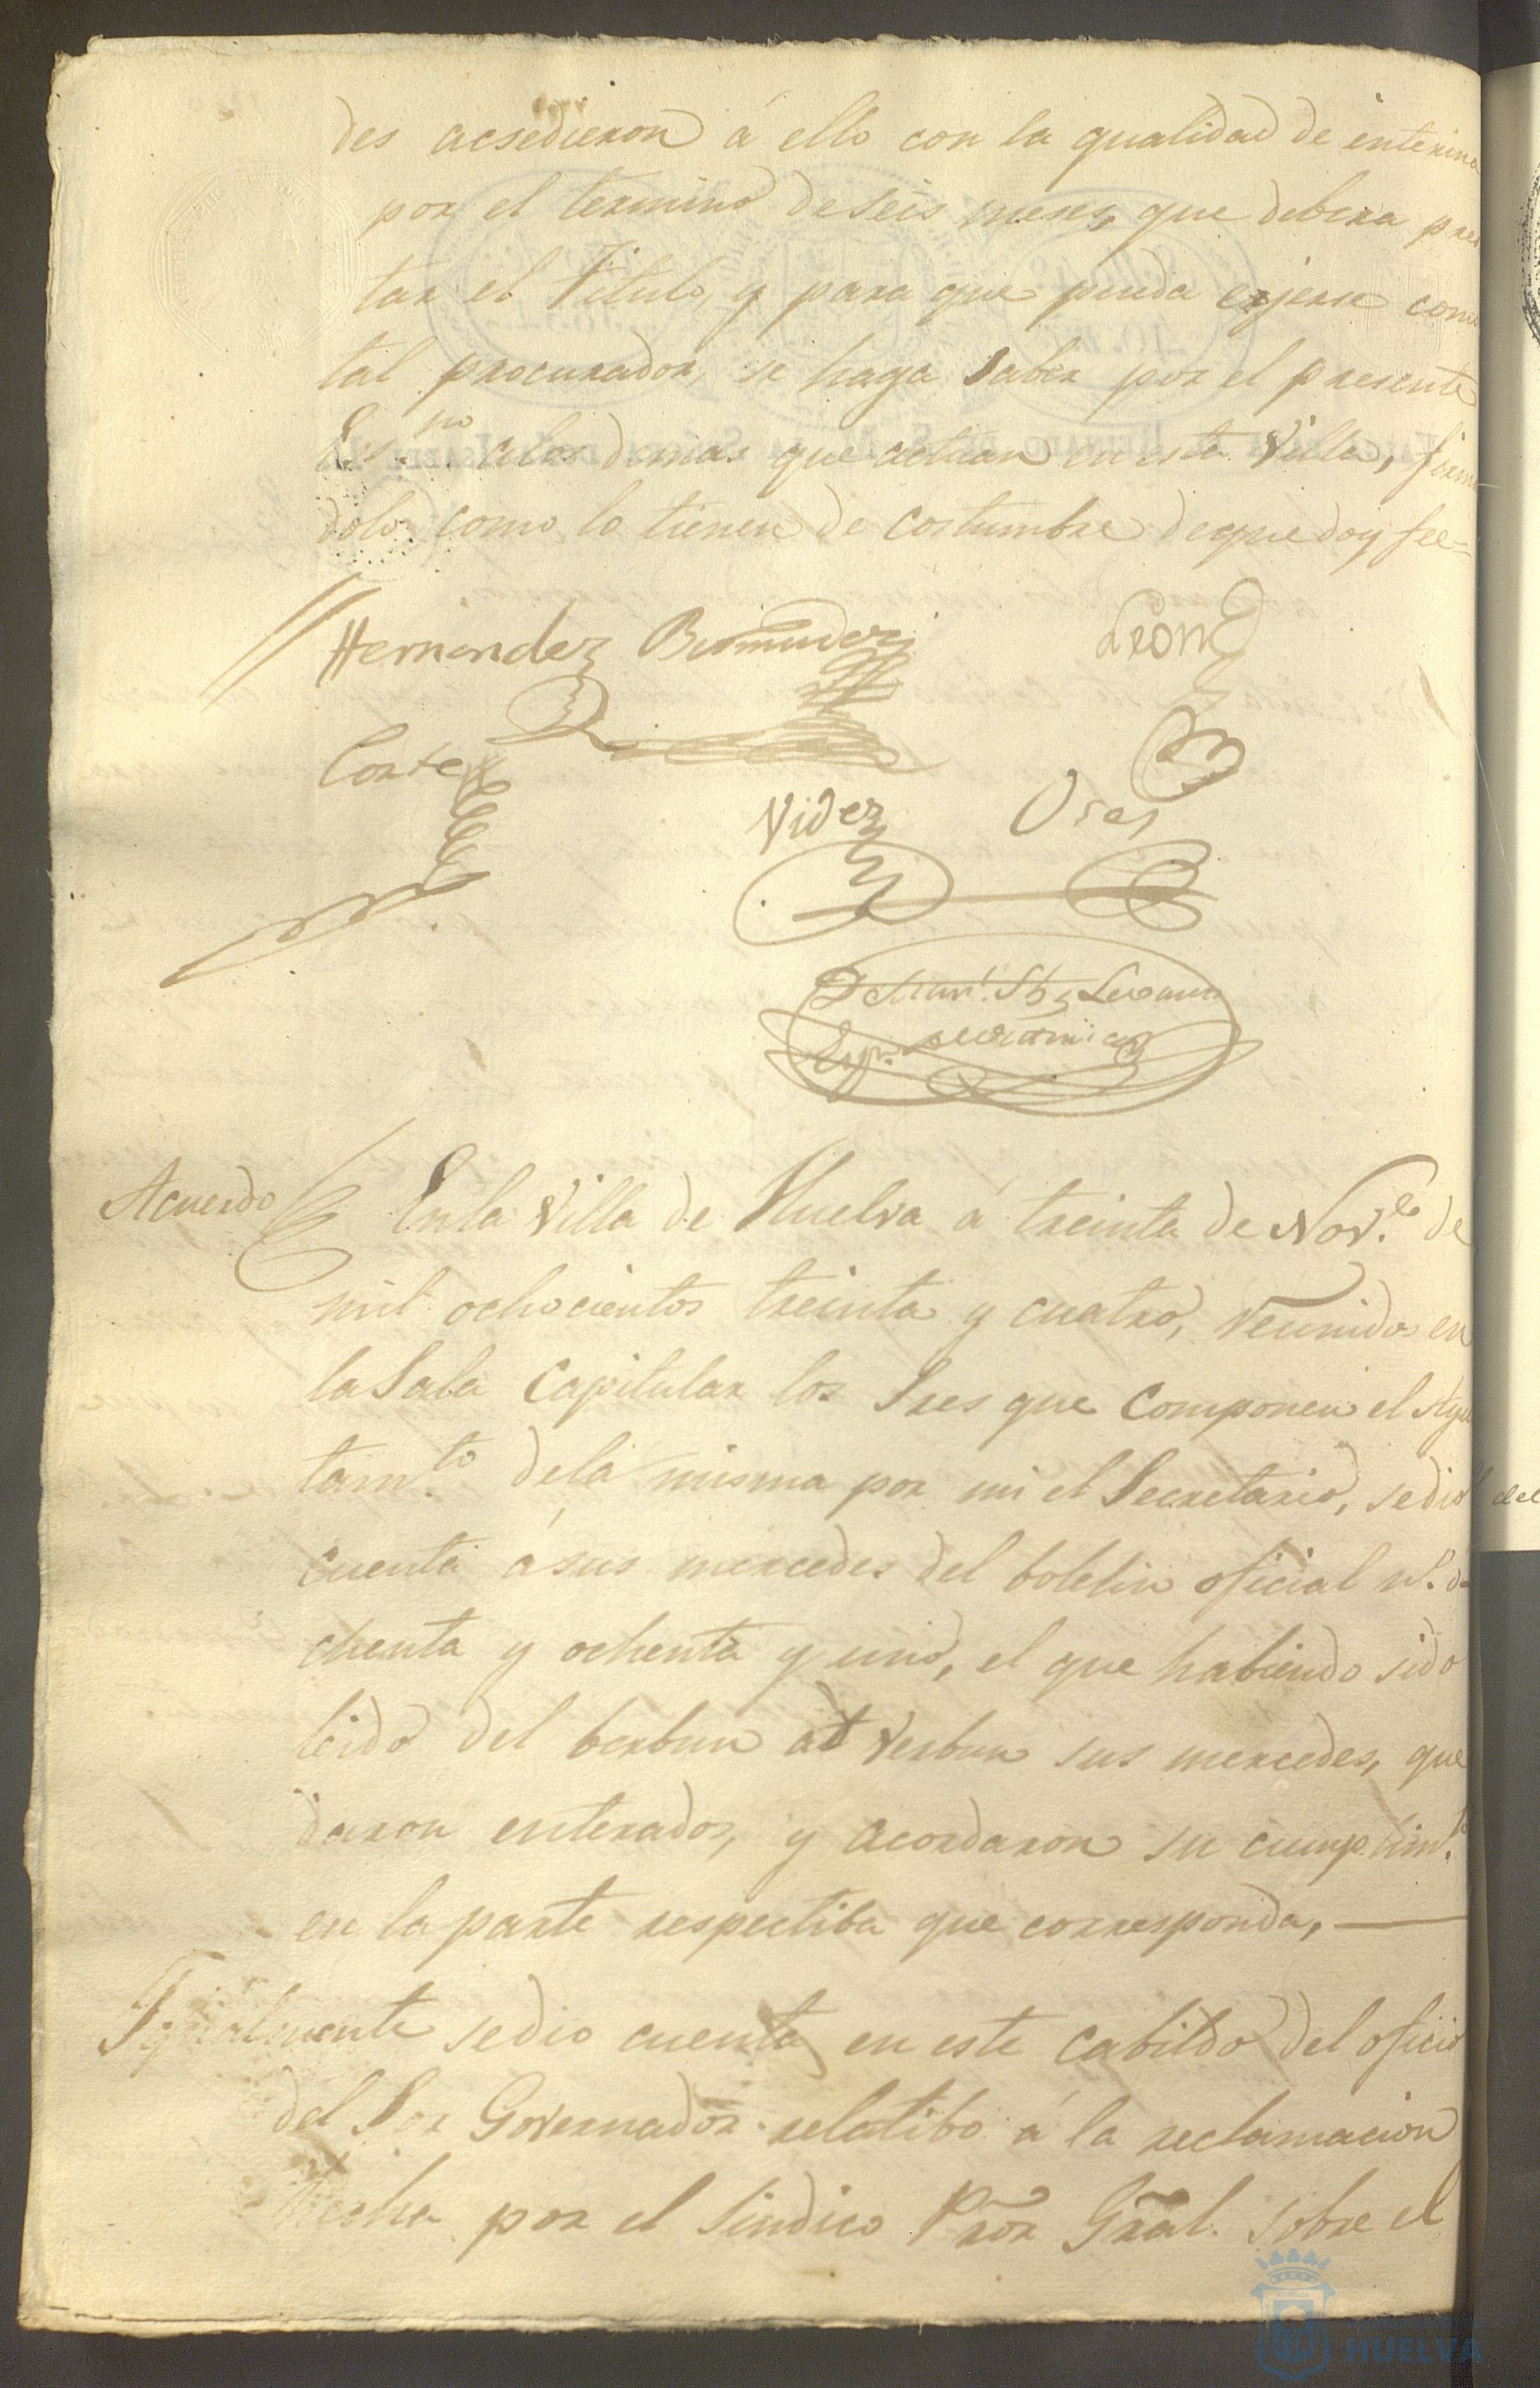 des acsedieron á ello con la qualidad de interino
por el termino de seis meses, que debera pres
tar el Titulo, y para que pueda ejerse como
tal procurador, se haga saber por el presente
Ess.no alos demas que actuan en esta Villa, firman
dolo como lo tienen de costumbre de que doy fee=
Hernandez Bermudez Leon
Cortes
Videz Ores
Acuerdo En la Villa de Huelva á treinta de Nov.e de
mil ochocientos treinta y cuatro, reunidos en
la Sala Capitular los Sres que componen el Ayun
tam.to dela misma por mi el Secretario, se dió
cuenta ásus mercedes del boletin oficial n.º o-
chenta y ochenta y uno, el que habiendo sido
leido del berbun ad verbun sus mercedes, que
daron enterados, y acordaron su cumplim.to
en la parte respectiba que corresponda,
Igualmente se dio cuenta en este cabildo del oficio
del Sor Governador relatibo á la reclamacion
hecha por el Sindico Pror Gral. sobre el
HUELVA